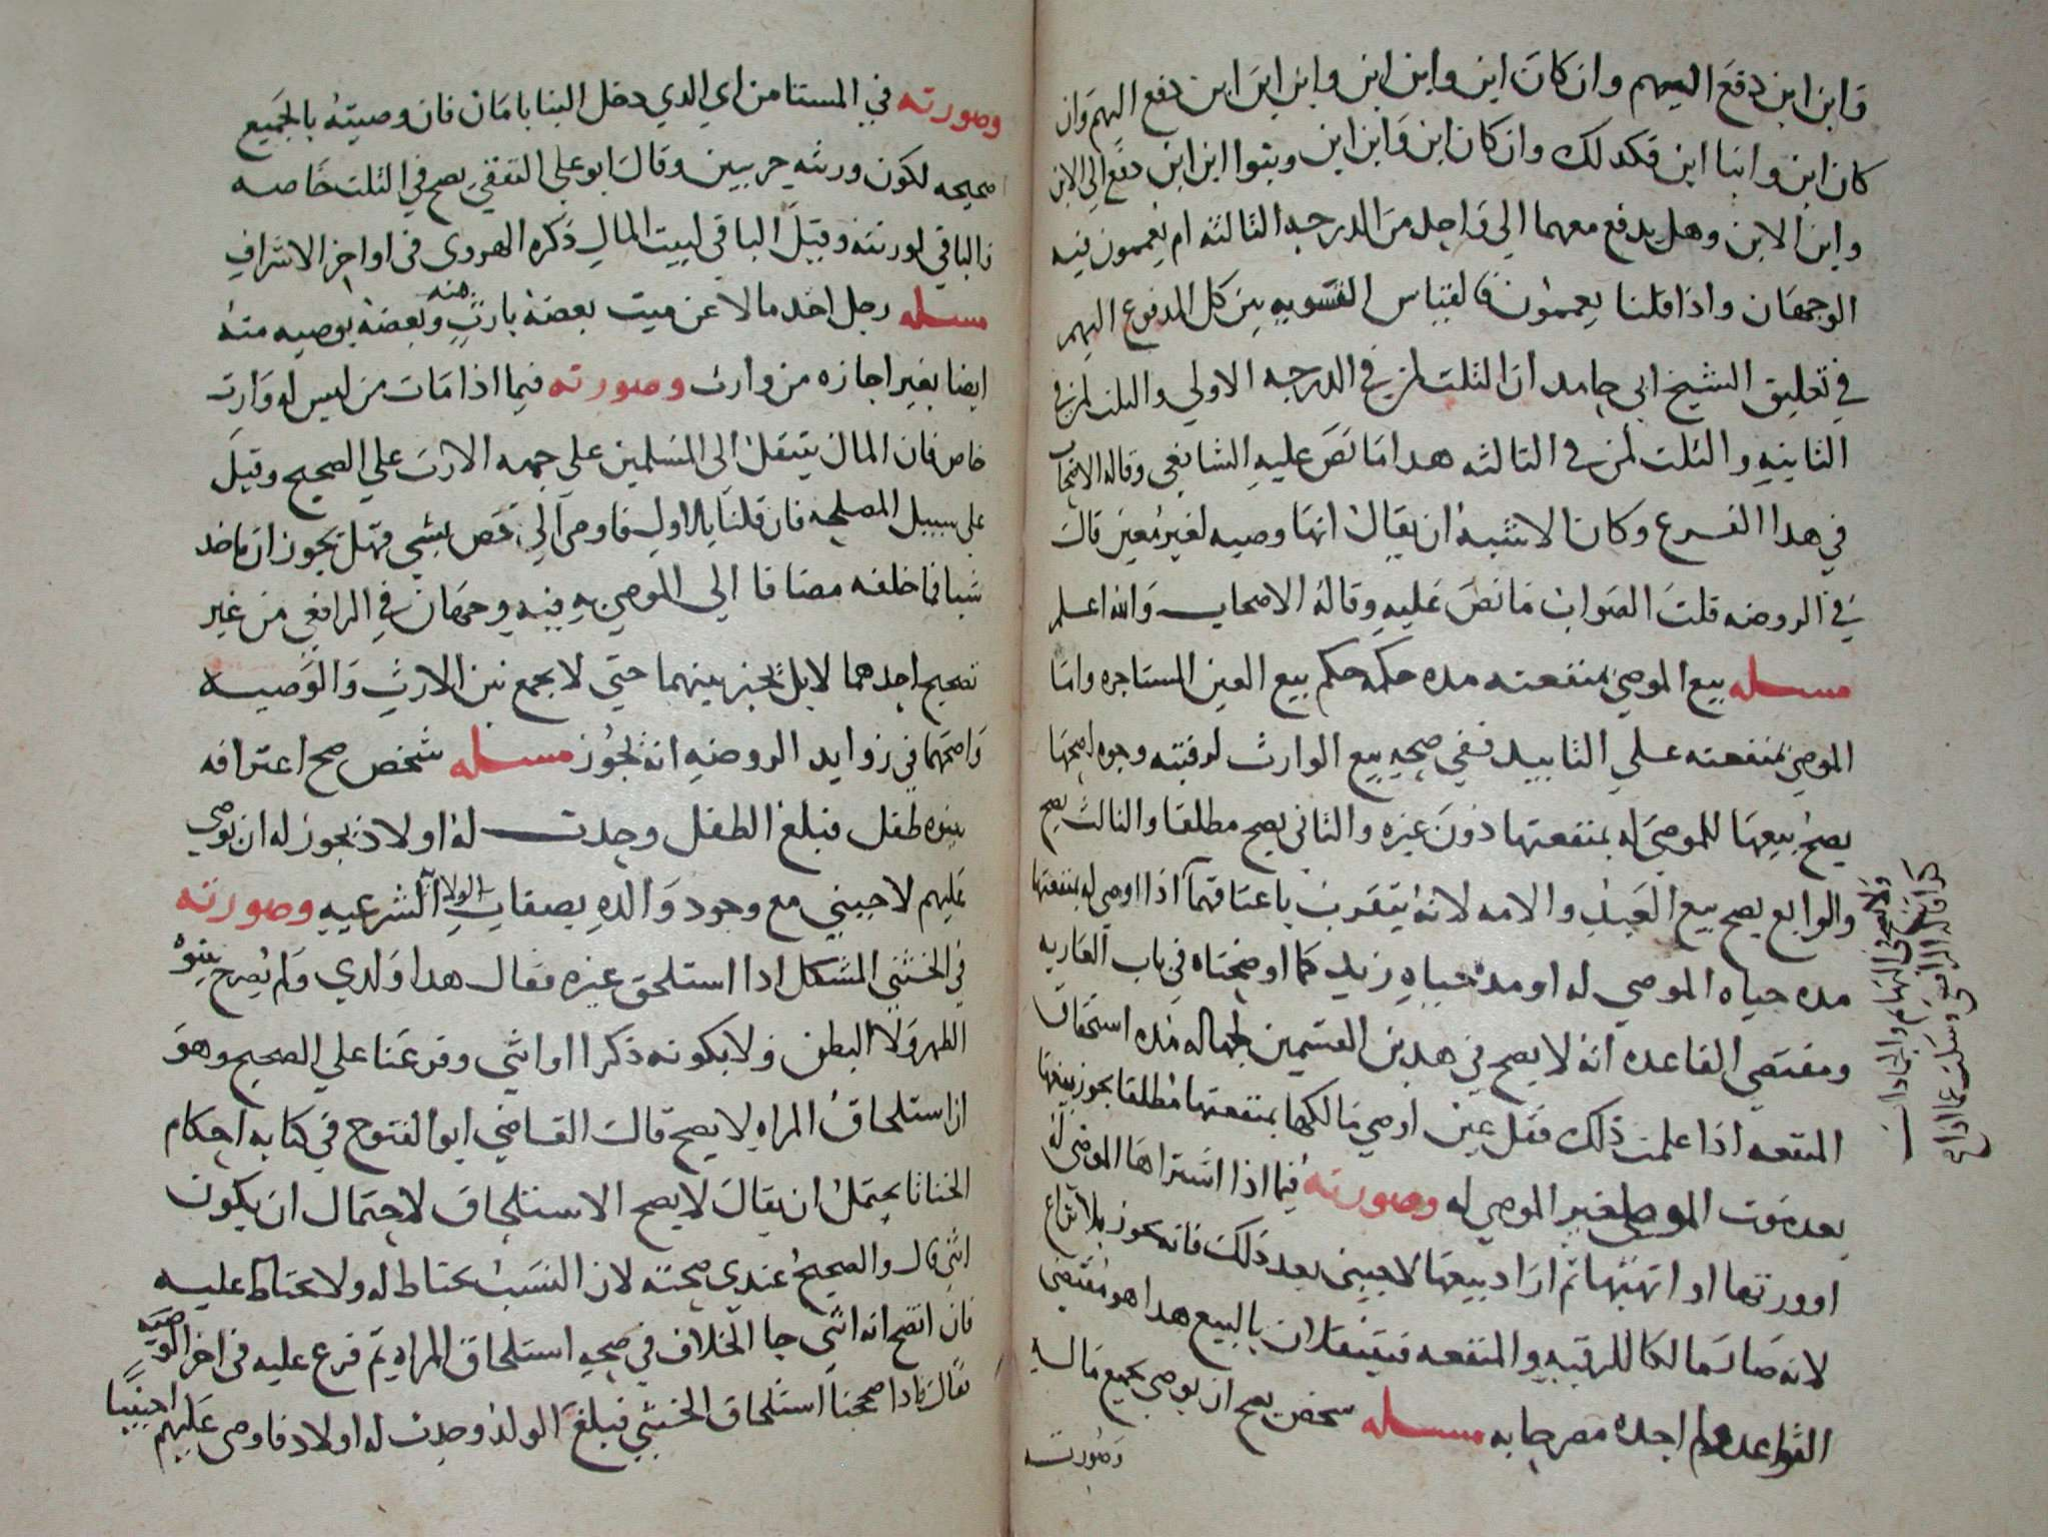 وابن ابن دفع اليهم وان كان ابن وابن ابن وابن ابن ابن دفع اليهم وان
كان ابن وابنا ابن فكدلك وان كان ابن وابن ابن وبنوا ابن ابن دفع الي الابن
وابن الابن وهل يدفع معهما الي واحد من الدرجه الثالثه ام يعممون فيه
الوجهان واذا قلنا يعممون فالقياس التسويه بين كل المدفوع اليهم
في تعليق الشيخ ابي حامد ان الثلث لمن في الدرجه الاولي والثلث لمن في
الثانيه والثلث لمن في الثالثه هدا ما نص عليه الشافعي وقاله الاصحاب
في هدا الفرع وكان الاشبه ان يقال انها وصيه لغير معين قال
في الروضه قلت الصواب ما نص عليه وقاله الاصحاب والله اعلم
مسله بيع الموصي بمنفعته مده حكمه حكم بيع العين المستاجره واما
الموصي بمنفعته علي التابيد ففي صحه بيع الوارث لرقبته وجوه اصحها
يصح بيعها للموصي له بمنفعتها دون غيره والثاني يصح مطلقا والثالث يصح
والرابع يصح بيع العبد والامه لانه يتقرب باعتاقهما اذا اوصي له بمنفعتها
مده حياه الموصي له او مده حياه زيد كما اوضحناه في باب العاريه
ومقتضي القاعده انه لا يصح في هدين القسمين لجهاله مده استحقاق
المنفعه اذا علمت ذلك فقل عين اوصي مالكها بمنفعتها مطلقا يجوز بيعها
بعد موت الموصي لغير الموصي له وصورته فيما اذا اشتراها الموصي له
او ورثها او اتهبها ثم اراد بيعها لاجنبي بعد ذلك فانه يجوز بلا نزاع
لانه صار مالكا للرقبه والمنفعه فينتقلان بالبيع هدا هو مقتضي
القواعد ولم اجده مصرحا به مسله شخص يصح ان يوصي بجميع ماله
وصورته
ولا يصح في البهايم والجمادات
كدا قاله الرافعي وسكت عما اداع
وصورته في المستامن اي الدي دخل الينا بامان فان وصيته بالجميع
صحيحه لكون ورثته حربيين وقال ابو علي الثقفي يصح في الثلث خاصه
فالباقي لورثته وقيل الباقي لبيت المال ذكره الهروي في اواخر الاشراف
مسله رجل اخد مالا عن ميت بعضه بارث منه وبعضه بوصيه منه
ايضا بغير اجازه من وارث وصورته فيما اذا مات من ليس له وارث
خاص فان المال ينتقل الي المسلمين علي جهه الارث علي الصحيح وقيل
علي سبيل المصلحه فان قلنا بالاول فاوصي الي شخص بشي فهل يجوز ان ياخد
شيا مما خلفه مضافا الي الموصي به فيه وجهان في الرافعي من غير
تصحيح احدهما لا بل يخير بينهما حتي لا يجمع بين الارث والوصيه
واصحهما في زوايد الروضه انه يجوز مسله شخص صح اعترافه
ببنوه طفل فبلغ الطفل وحدت له اولاد يجوز له ان يوصي
عليهم لاجنبي مع وجود والده بصفات الولايه الشرعيه وصورته
في الخنثي المشكل ادا استلحق غيره فقال هدا ولدي ولم يصرح ببنوه
الظهر ولا البطن ولا بكونه ذكرا او انثي وفرعنا علي الصحيح وهو
ان استلحاق المراه لا يصح قال القاضي ابو الفتوح في كتابه احكام
الخناثا يحتمل ان يقال لا يصح الاستلحاق لاحتمال ان يكون
انثي قال والصحيح عندي صحته لان النسب يحتاط له ولا يحتاط عليه
فان اتضح انه انثي جا الخلاف في صحه استلحاق المراه ثم فرع عليه في اخر الوصيه
فقال فادا صححنا استلحاق الخنثي فبلغ الولد وحدث له اولاد فاوصي عليهم اجنبيا